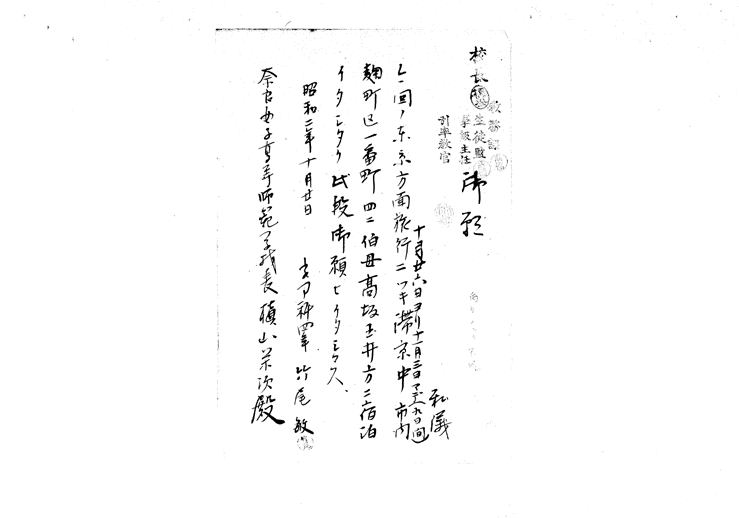 校長
教務課
生徒監
学級主任
引率教官
御願
私儀
十月廿六日ヨリ十一月三日マデ九日間
今回ノ東京方面旅行ニツキ滞京中市内
麹町区一番町四二伯母高坂玉井方ニ宿泊
イタシタク此段御願ヒイタシマス、
昭和二年十月廿日
文科四年 竹尾 敏
奈良女子高等師範学校長槇山栄次殿